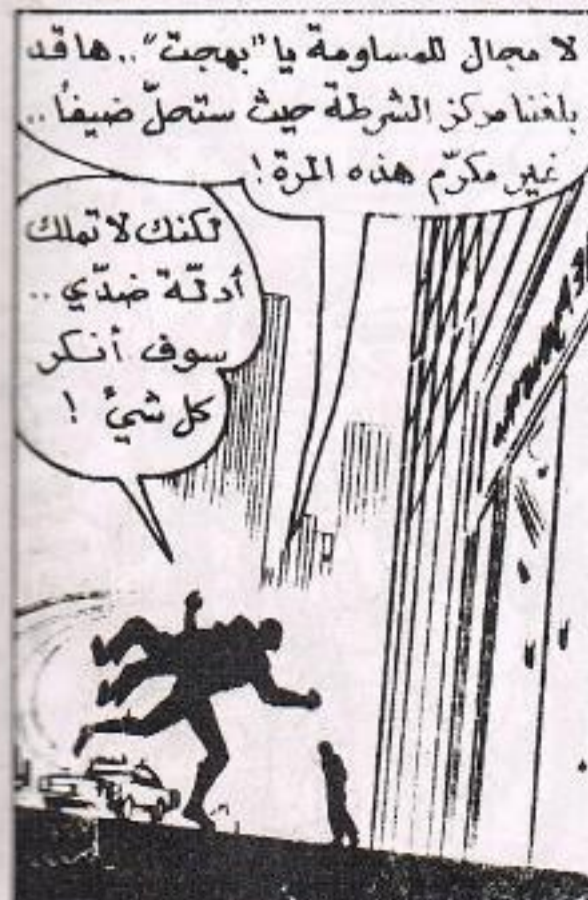 لا مجال للمساومة يا "بهجت".. ها قد
بلغنا مركز الشرطة حيث ستحلّ ضيفاً..
غير مكرّم هذه المرة!
لكنك لا تملك
أدلّة ضدّي..
سوف أنكر
كل شيئ !